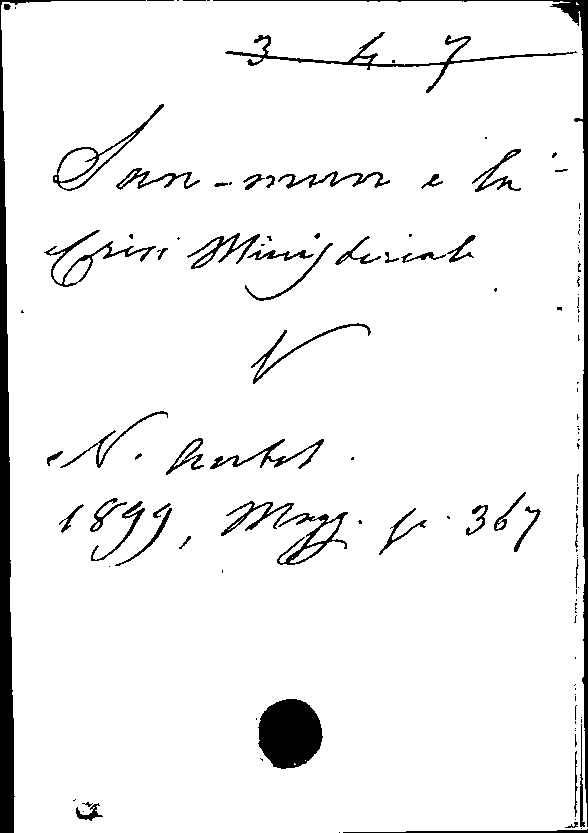 3. 4. 7
San-mun e la
Crisi Ministeriale
V
N. Antol.
1899, Magg. p. 367